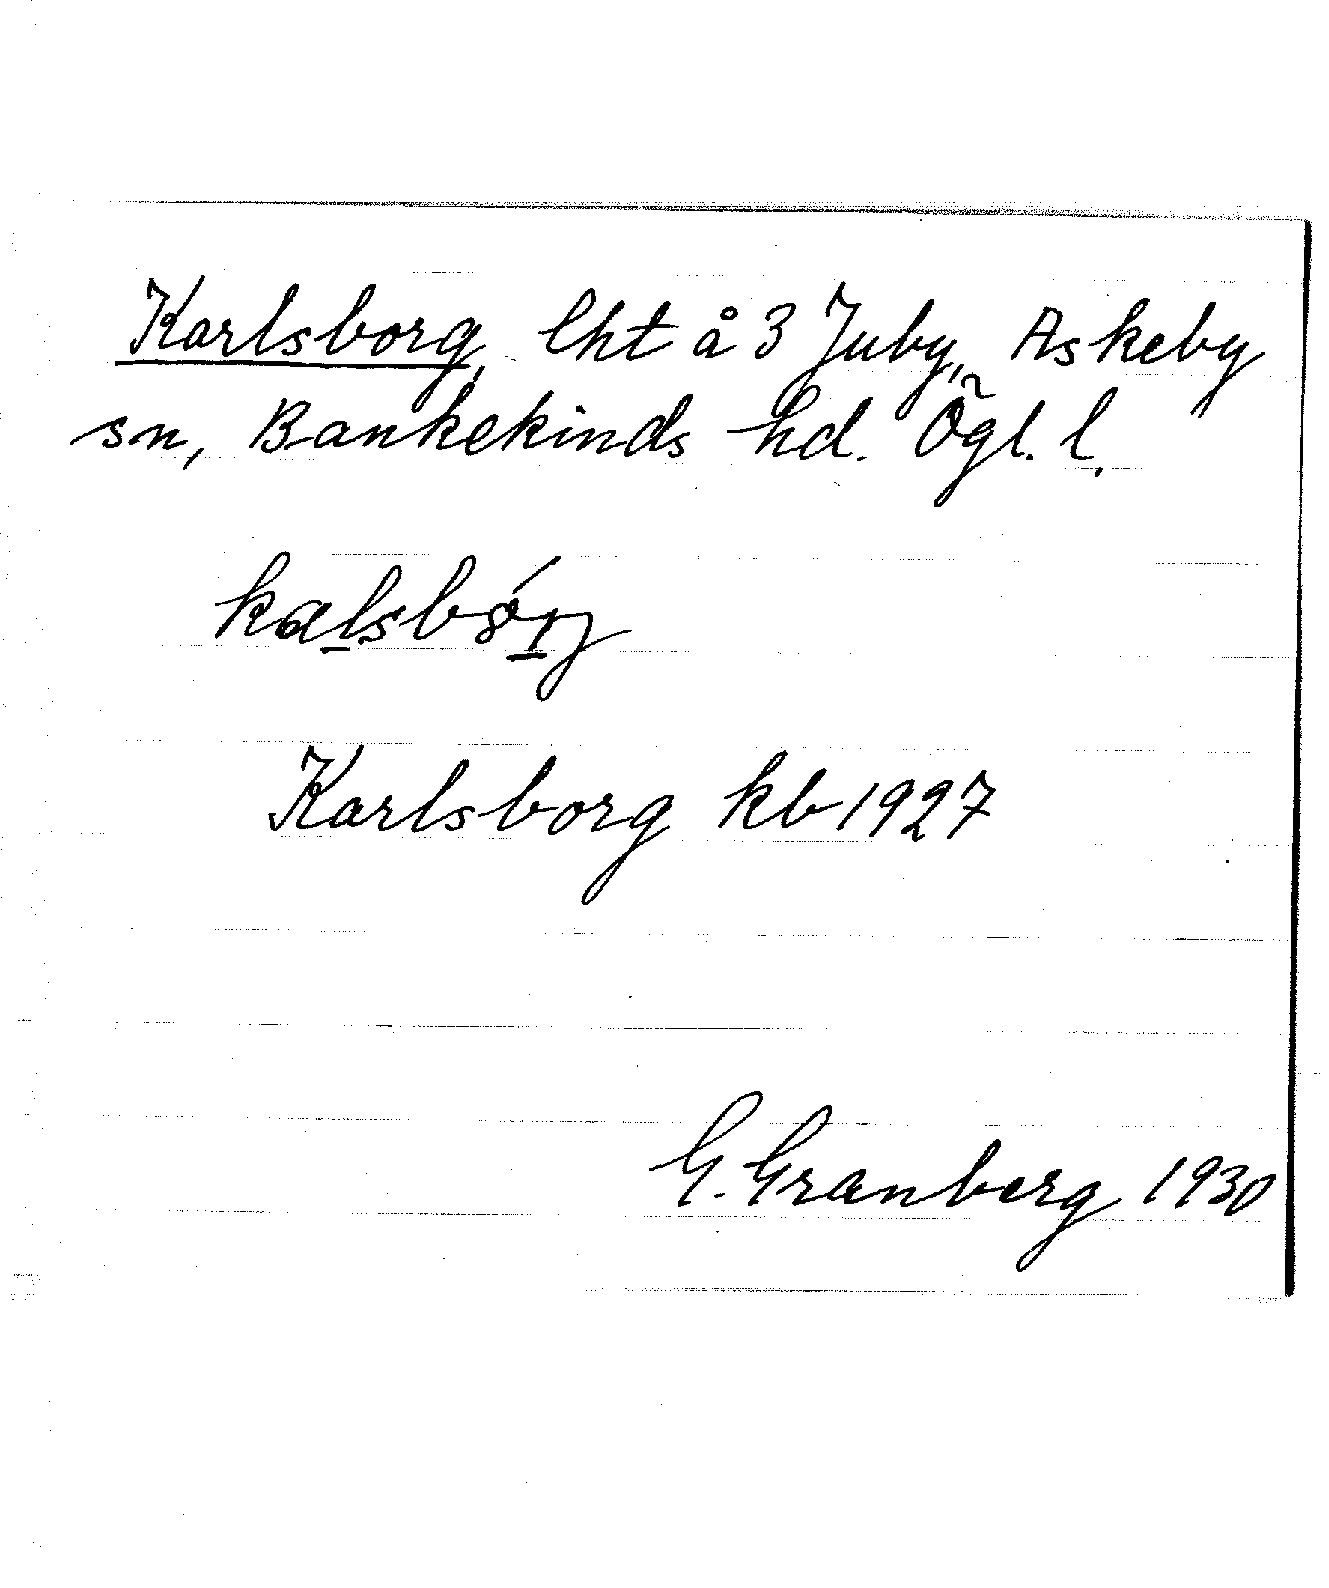 Karlsborg, lht å 3 Juby, Askeby
sn, Bankekinds hd. Ögl. l.
Karlsborg kb 1927
G. Granberg 1930